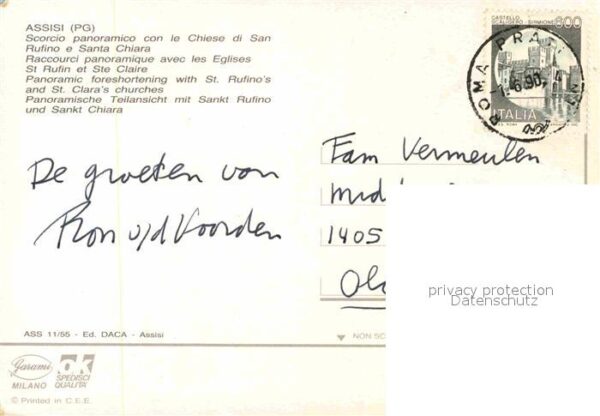 ASSISI (PG)
Scorcio panoramico con le Chiese di San
Rufino e Santa Chiara
Raccourci panoramique avec les Eglises
St Rufin et Ste Claire
Panoramic foreshortening with St. Rufino's
and St. Clara's churches
Panoramische Teilansicht mit Sankt Rufino
und Sankt Chiara
CASTELLO
SCALIGERO SIRMIONE 800
ROMA PRATI
ITALIA
De groeten van
Ron v/d Voorden
Fam Vermeulen
1405
privacy protection
Datenschutz
ASS 11/55 - Ed. DACA - Assisi
NON
Garami
MILANO
ok
SPEDISCI
QUALITÀ
© Printed in C.E.E.